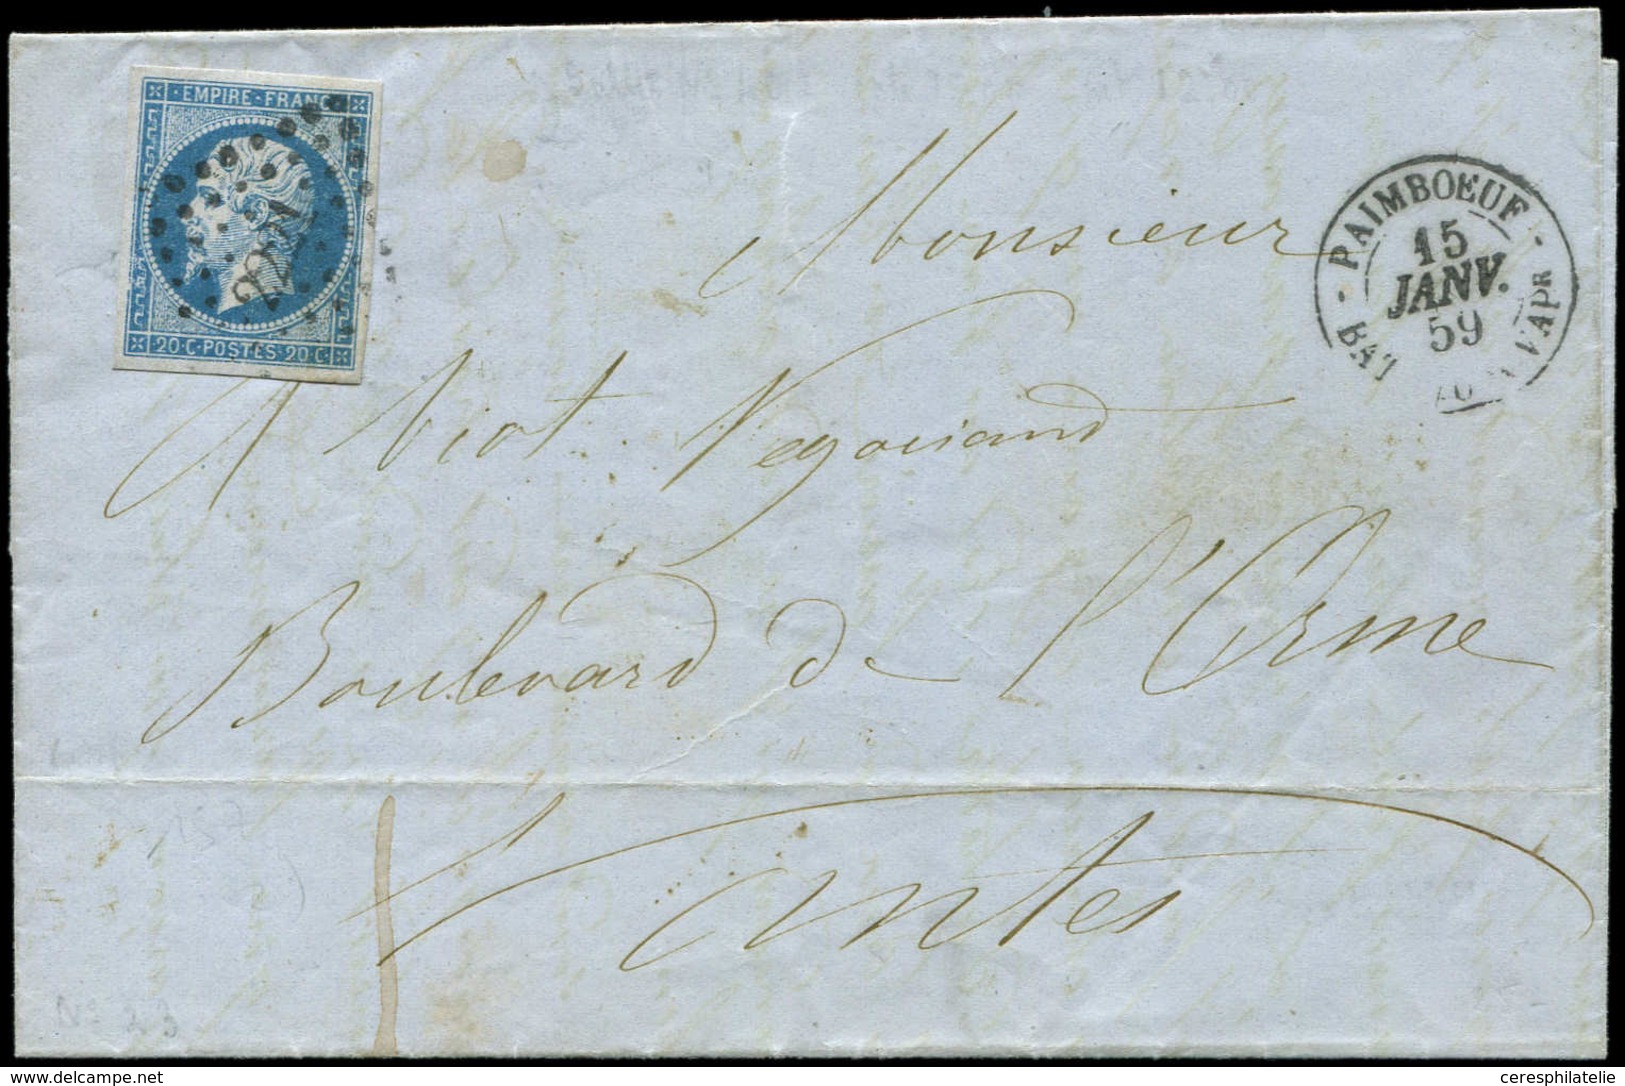 EMPIRE-FRANC
2221
20·C·POSTES·20·C
PAIMBOEUF
15
JANV.
59
VAPR
Monsieur
A Viot Negociant
Boulevard de l'Orme
Nantes
157
No 23
www.delcampe.net
ceresphilatelie